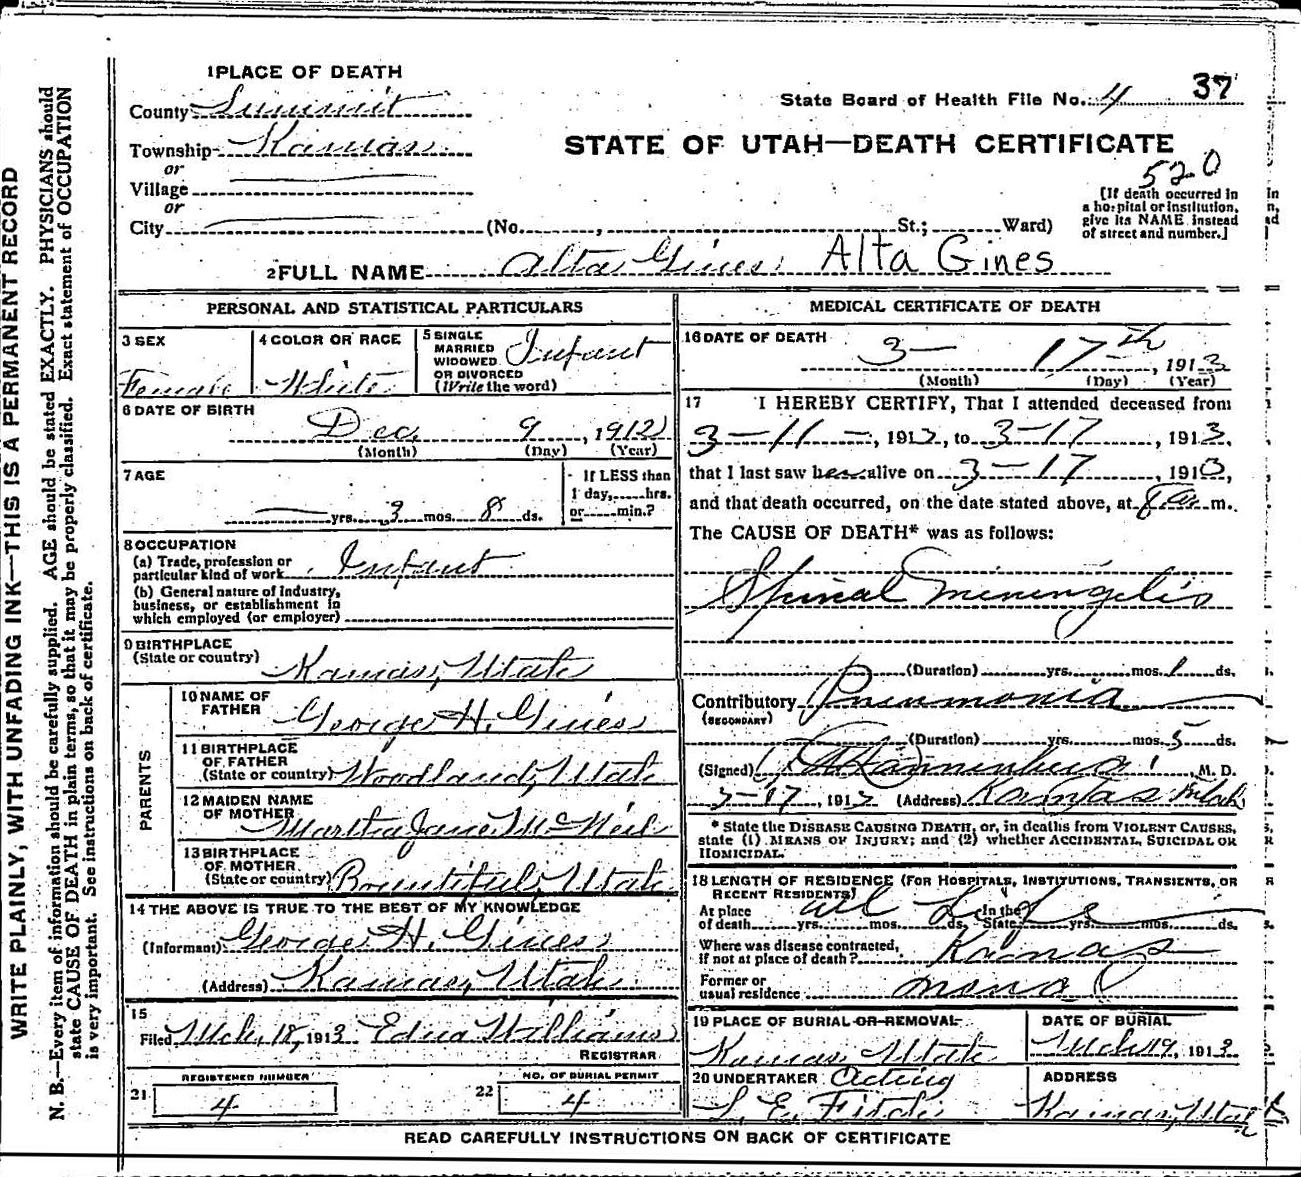 1 PLACE OF DEATH
County Summit
State Board of Health File No. 4 37
Township Kamas
or
Village
or
City (No. , St.; Ward)
STATE OF UTAH—DEATH CERTIFICATE
520
[If death occurred in
a hospital or institution,
give its NAME instead
of street and number.]
2 FULL NAME Alta Gines Alta Gines
PERSONAL AND STATISTICAL PARTICULARS
3 SEX
Female
4 COLOR OR RACE
White
5 SINGLE
MARRIED
WIDOWED
OR DIVORCED
(Write the word)
Infant
6 DATE OF BIRTH
Dec 9, 1912
(Month) (Day) (Year)
7 AGE
yrs. 3 mos. 8 ds.
If LESS than
1 day, hrs.
or min.?
8 OCCUPATION
(a) Trade, profession or
particular kind of work Infant
(b) General nature of industry,
business, or establishment in
which employed (or employer)
9 BIRTHPLACE
(State or country) Kamas, Utah
PARENTS
10 NAME OF
FATHER George H. Gines
11 BIRTHPLACE
OF FATHER
(State or country) Woodland, Utah
12 MAIDEN NAME
OF MOTHER Martha Jane McNeil
13 BIRTHPLACE
OF MOTHER
(State or country) Bountiful, Utah
14 THE ABOVE IS TRUE TO THE BEST OF MY KNOWLEDGE
(Informant) George H. Gines
(Address) Kamas, Utah
15
Filed Mch. 18, 1913 Edna Williams
REGISTRAR
REGISTERED NUMBER
21 4
NO. OF BURIAL PERMIT
22 4
MEDICAL CERTIFICATE OF DEATH
16 DATE OF DEATH
3— 17th, 1913
(Month) (Day) (Year)
17 I HEREBY CERTIFY, That I attended deceased from
3—11—, 1913, to 3—17, 1913,
that I last saw her alive on 3—17, 1913,
and that death occurred, on the date stated above, at 8 a m.
The CAUSE OF DEATH* was as follows:
Spinal Miningelis
(Duration) yrs. mos. 1 ds.
Contributory Pneumonia
(SECONDARY)
(Duration) yrs. mos. 5 ds.
(Signed) , M. D.
3-17, 1913 (Address) Kamas Utah
* State the DISEASE CAUSING DEATH, or, in deaths from VIOLENT CAUSES,
state (1) MEANS OF INJURY; and (2) whether ACCIDENTAL, SUICIDAL OR
HOMICIDAL.
18 LENGTH OF RESIDENCE (FOR HOSPITALS, INSTITUTIONS, TRANSIENTS, OR
RECENT RESIDENTS)
At place
of death yrs. mos. ds. In the State yrs. mos. ds.
all Life
Where was disease contracted,
if not at place of death? Kamas
Former or
usual residence
19 PLACE OF BURIAL OR REMOVAL
Kamas, Utah
DATE OF BURIAL
Mch 19, 1913
20 UNDERTAKER Acting
ADDRESS
Kamas, Utah
READ CAREFULLY INSTRUCTIONS ON BACK OF CERTIFICATE
WRITE PLAINLY, WITH UNFADING INK—THIS IS A PERMANENT RECORD
N. B.—Every item of information should be carefully supplied. AGE should be stated EXACTLY. PHYSICIANS should
state CAUSE OF DEATH in plain terms, so that it may be properly classified. Exact statement of OCCUPATION
is very important. See instructions on back of certificate.